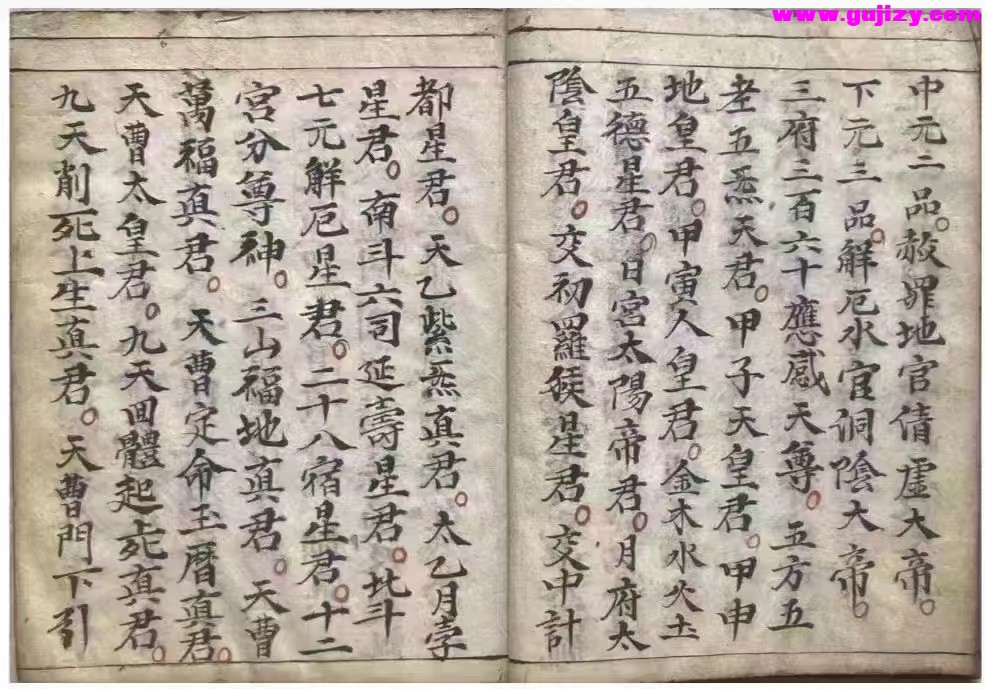 www.gujizy.com
中元二品。赦罪地官倩虚大帝。
下元三品。解厄水官洞陰大帝。
三府三百六十應感天尊。五方五
老五炁天君。甲子天皇君。甲申
地皇君。甲寅人皇君。金木水火土
五德星君。日宮太陽帝君。月府太
陰皇君。交初羅睺星君。交中計
都星君。天乙紫炁真君。太乙月孛
星君。南斗六司延壽星君。北斗
七元解厄星君。二十八宿星君。十二
宮分尊神。三山福地真君。天曹
萬福真君。天曹定命玉曆真君。
天曹太皇君。九天回體起死真君。
九天削死上生真君。天曹門下引